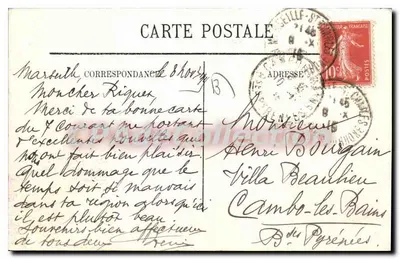 CARTE POSTALE
CORRESPONDANCE
ADRESSE
Marseille 8
Mon cher
Merci de ta bonne carte
du 7 Courant me portant
d'excellentes nouvelles qui
m'ont fait bien plaisir
quel dommage que le
temps soit si mauvais
dans ta région alors qu'ici
il est plutôt beau.
Souvenirs bien affectueux
de tous deux
Monsieur
Henri Bourgain
Villa Beaulieu
Cambo-les-Bains
Bses Pyrénées
10
B